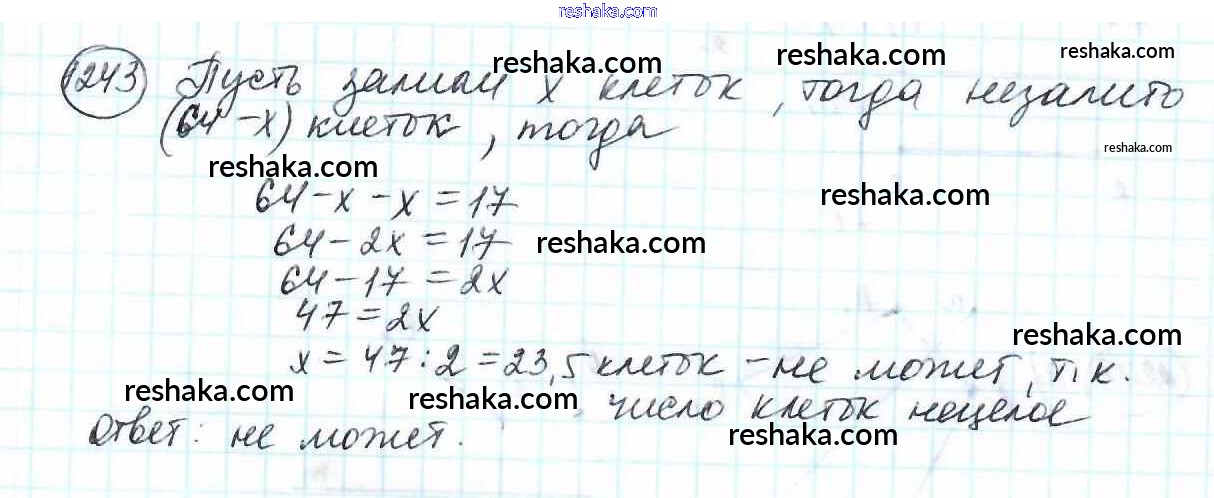 reshaka.com
1243 Пусть залили x клеток, тогда незалито
reshaka.com
reshaka.com
reshaka.com
(64-x) клеток, тогда
reshaka.com
reshaka.com
64-x-x=17
reshaka.com
64-2x=17
reshaka.com
64-17=2x
47=2x
reshaka.com
x=47:2=23,5 клеток - не может, т.к.
reshaka.com
reshaka.com
число клеток нецелое
Ответ: не может.
reshaka.com